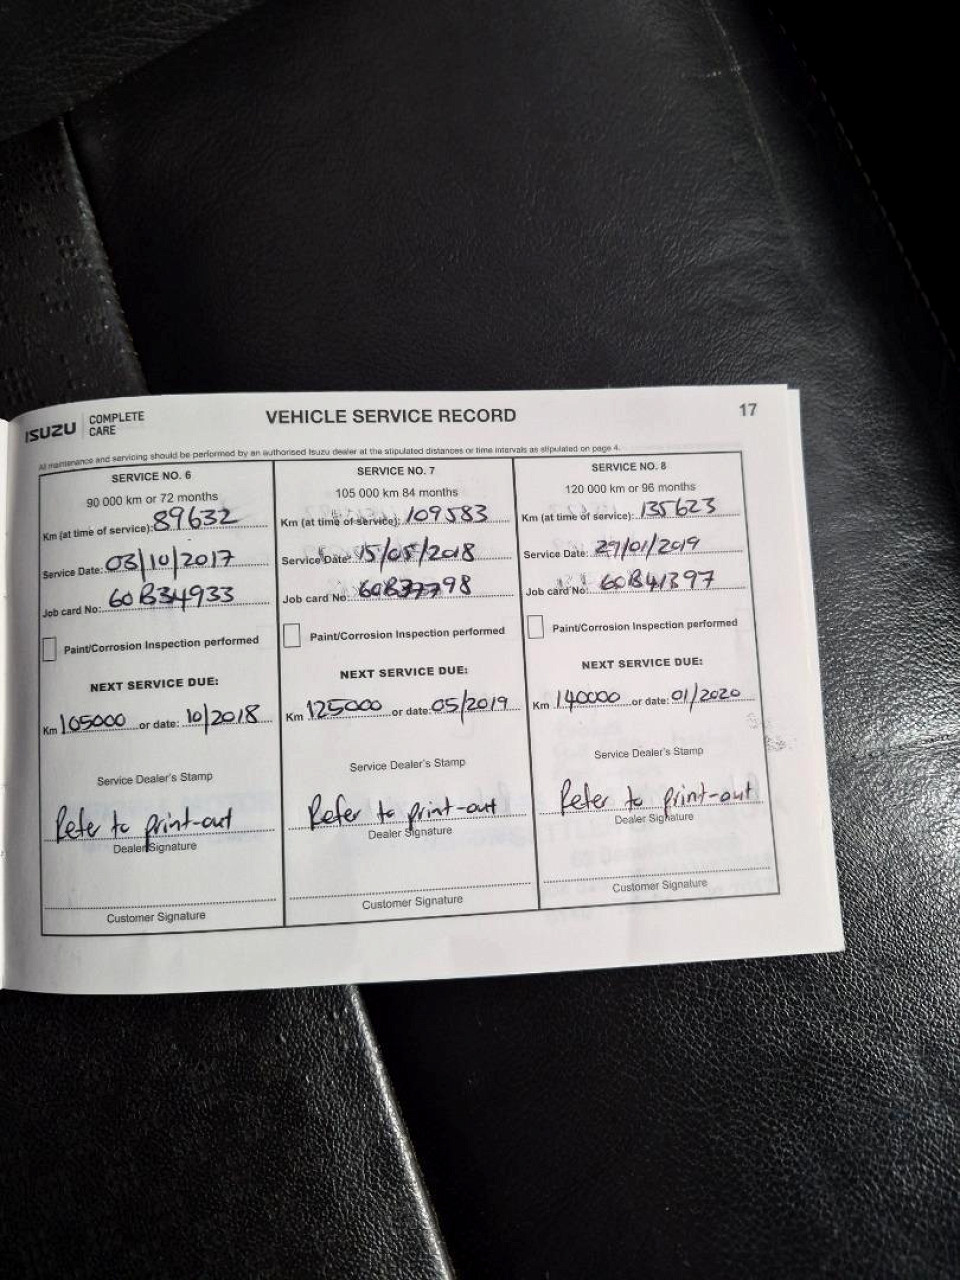 ISUZU COMPLETE CARE
VEHICLE SERVICE RECORD
17
All maintenance and servicing should be performed by an authorised Isuzu dealer at the stipulated distances or time intervals as stipulated on page 4.
SERVICE NO. 6
90 000 km or 72 months
Km (at time of service): 89632
Service Date: 03/10/2017
Job card No: 60B34933
Paint/Corrosion Inspection performed
NEXT SERVICE DUE:
Km 105000 or date: 10/2018
Service Dealer's Stamp
Refer to print-out
Dealer Signature
Customer Signature
SERVICE NO. 7
105 000 km 84 months
Km (at time of service): 109583
Service Date: 15/05/2018
Job card No: 60B37798
Paint/Corrosion Inspection performed
NEXT SERVICE DUE:
Km 125000 or date: 05/2019
Service Dealer's Stamp
Refer to print-out
Dealer Signature
Customer Signature
SERVICE NO. 8
120 000 km or 96 months
Km (at time of service): 135623
Service Date: 29/01/2019
Job card No: 60B41397
Paint/Corrosion Inspection performed
NEXT SERVICE DUE:
Km 140000 or date: 01/2020
Service Dealer's Stamp
Refer to print-out
Dealer Signature
Customer Signature